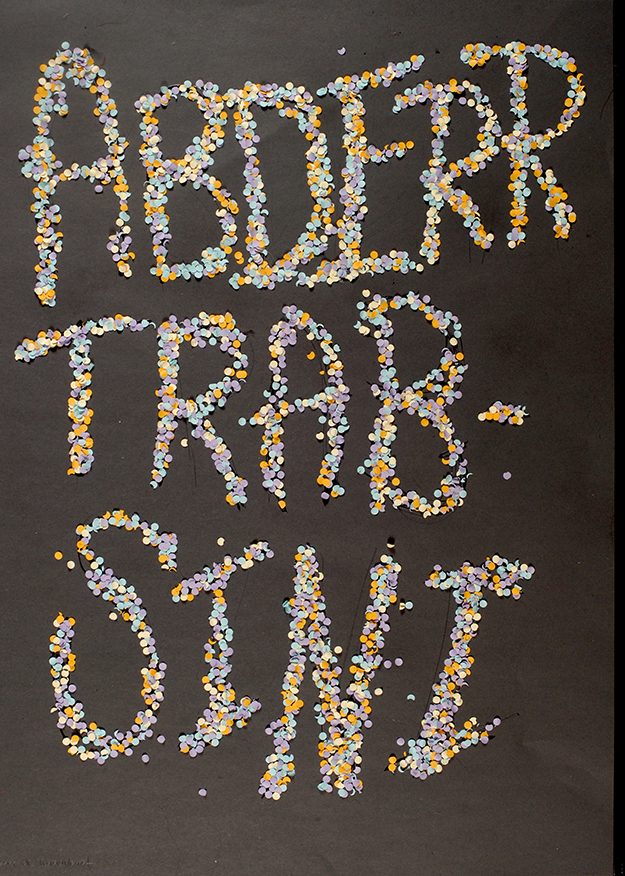 ABDERR
TRAB-
SINI